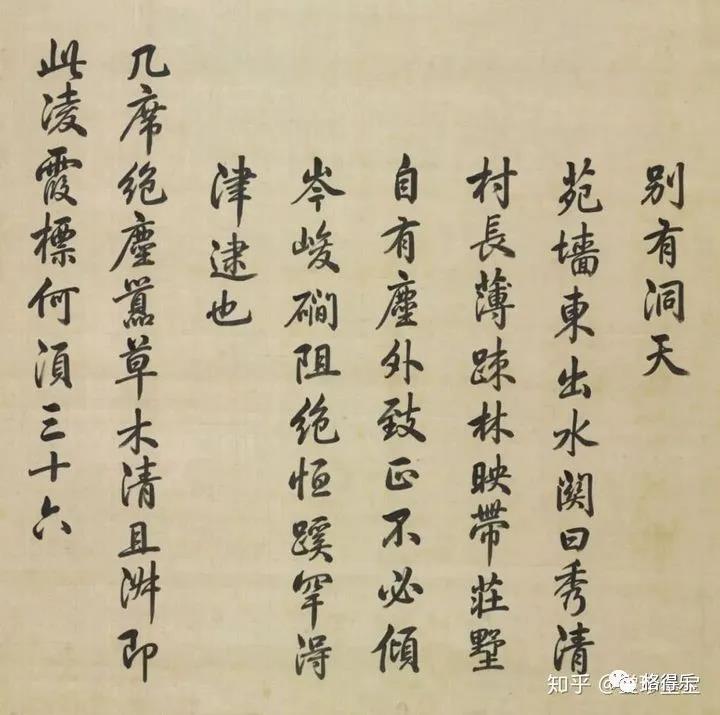 别有洞天
苑墙東出水関曰秀清
村長薄踈林映帶莊墅
自有塵外致正不必傾
岑峻磵阻絶恒蹊罕得
津逮也
几席絶塵囂草木清且淑即
此凌霞標何須三十六
知乎
珞得乐